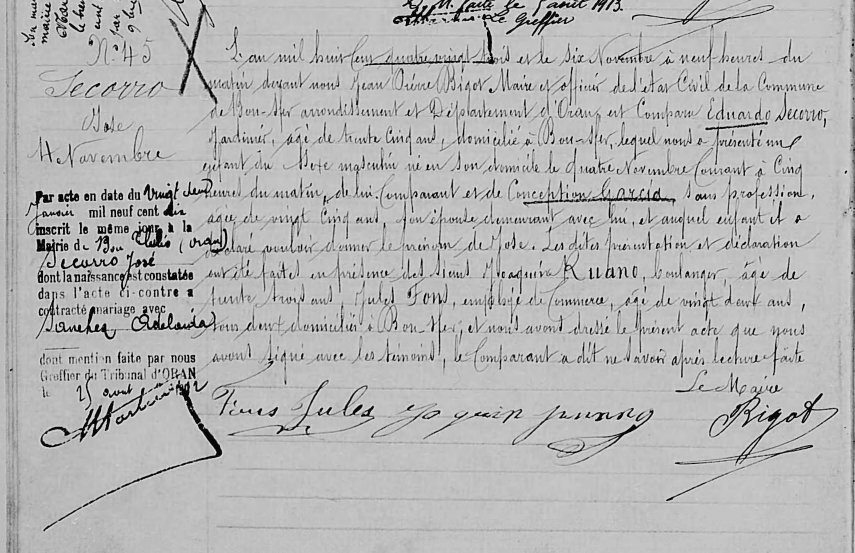 le 5 avril 1913.
Greffier
N° 45
Secorro
Jose
4 Novembre
L'an mil huit cent quatre vingt trois et le six Novembre à neuf heures du
matin devant nous Jean Pierre Bigot Maire et officier de l'état Civil de la Commune
de Bou-Sfer arrondissement et Département d'Oran, est Comparu Eduardo Secorro,
Jardinier, âgé de trente Cinq ans, domicilié à Bou-Sfer, lequel nous a présenté un
enfant du Sexe masculin né en son domicile le quatre Novembre Courant à Cinq
heures du matin, de lui Comparant et de Conception Garcia, sans profession,
âgée de vingt Cinq ans, son épouse demeurant avec lui, et auquel enfant il a
déclaré vouloir donner le prénom de Jose. Les dites présentation et déclaration
ont été faites en présence des Sieurs Joaquin Ruano, boulanger, âgé de
trente trois ans, Jules Fons, employé de Commerce, âgé de vingt deux ans,
tous deux domiciliés à Bou-Sfer, et nous avons dressé le présent acte que nous
avons signé avec les témoins, le Comparant a dit ne savoir après lecture faite
Le Maire
Fons Jules
Bigot
Par acte en date du Vingt deux
Janvier mil neuf cent dix
inscrit le même jour à la
Mairie de Bou (Oran)
Secorro José
dont la naissance est constatée
dans l'acte ci-contre a
contracté mariage avec
Sanchez Adelaïda
dont mention faite par nous
Greffier du Tribunal d'ORAN
le 25 août